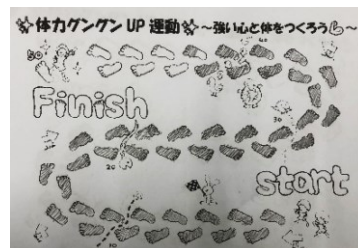 体力グングンUP運動 ～強い心と体をつくろう～
50
40
Finish
30
20
start
10